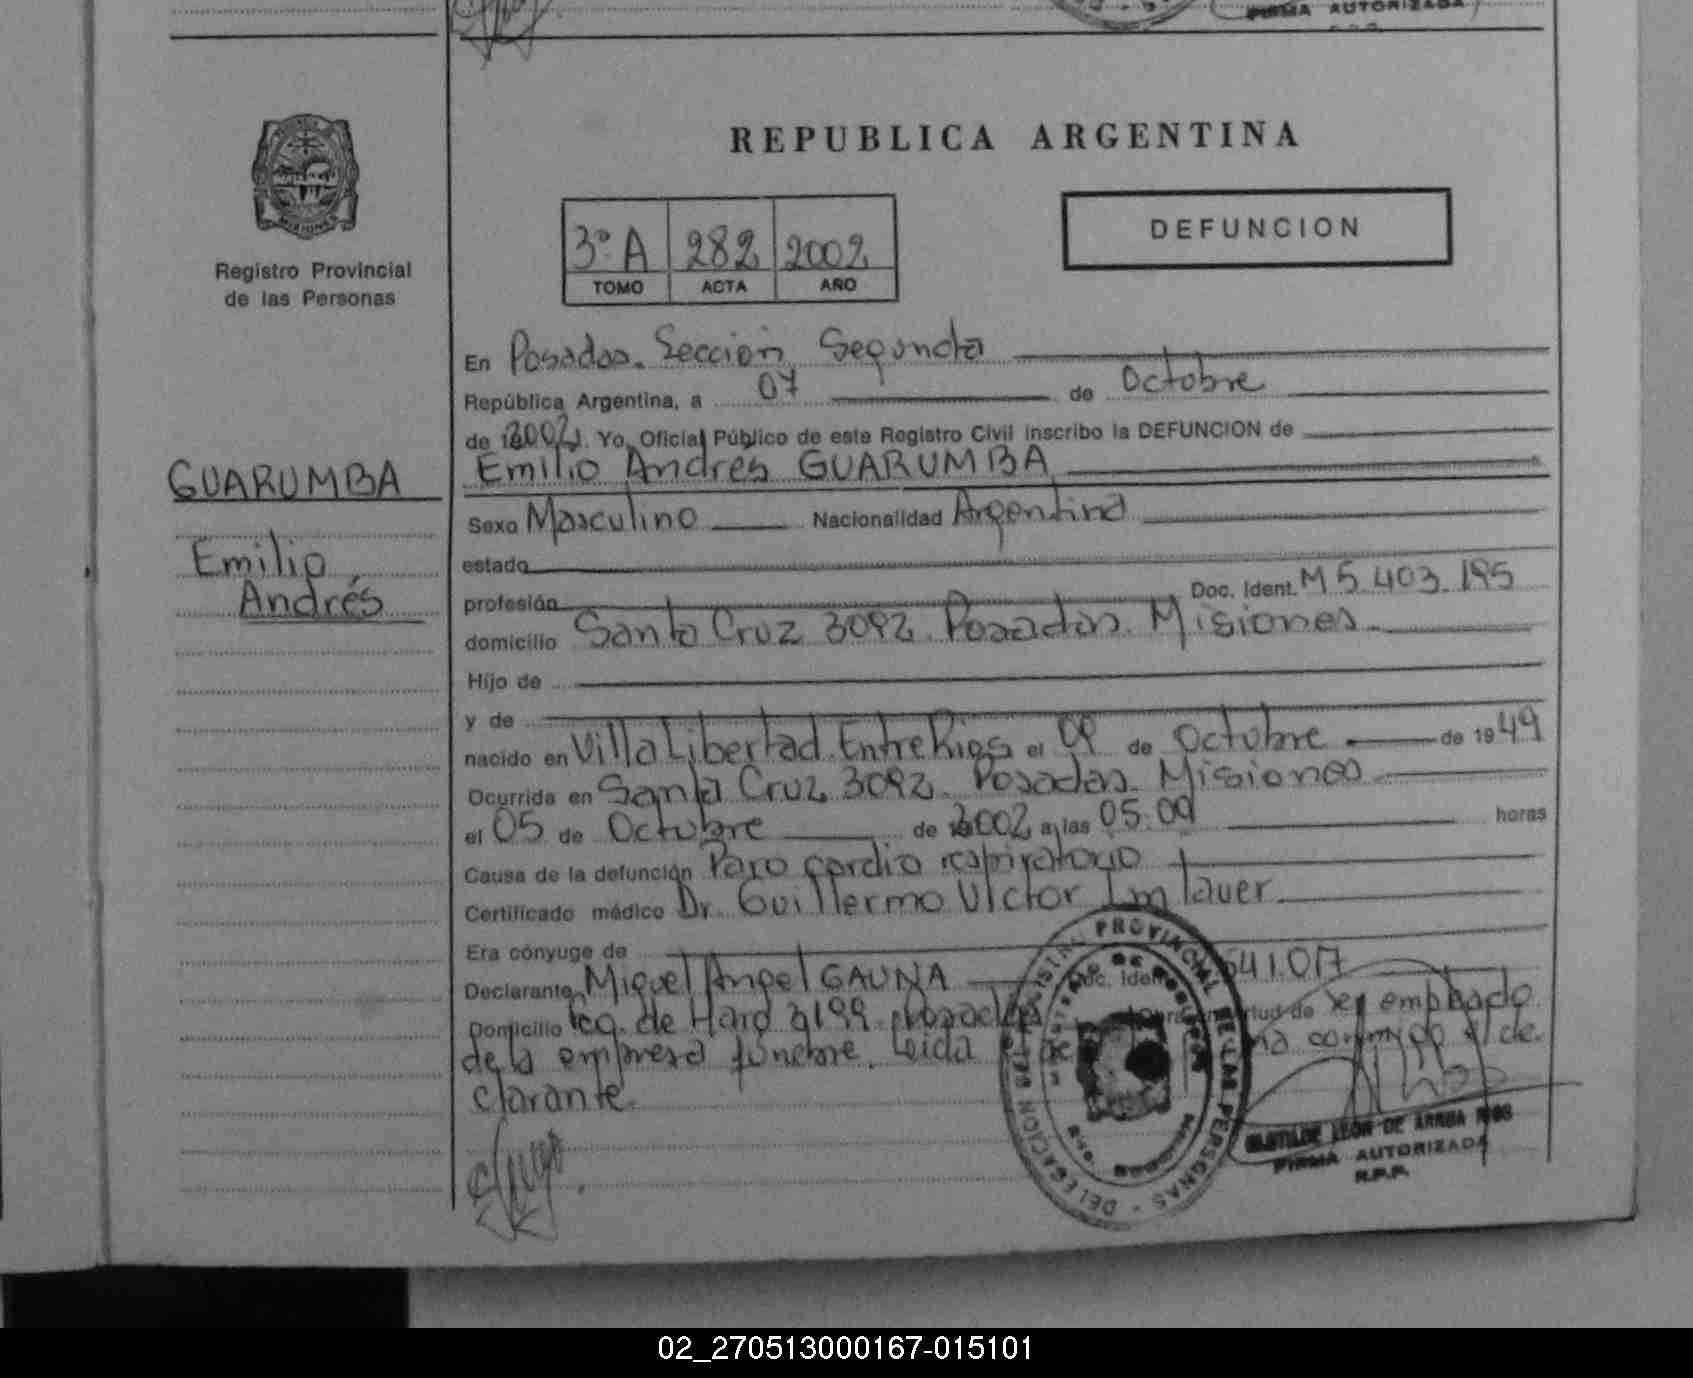 FIRMA AUTORIZADA
REPUBLICA ARGENTINA
Registro Provincial
de las Personas
3º A 282 2002
TOMO ACTA AÑO
DEFUNCION
GUARUMBA
Emilio
Andrés
En Posadas. Sección Segunda
República Argentina, a 07 de Octubre
de 2002. Yo, Oficial Público de este Registro Civil inscribo la DEFUNCION de
Emilio Andrés GUARUMBA
Sexo Masculino Nacionalidad Argentina
estado
profesión Doc. Ident. M 5.403.195
domicilio Santa Cruz 3092. Posadas. Misiones
Hijo de
y de
nacido en Villa Libertad. Entre Rios el 09 de Octubre de 1949
Ocurrida en Santa Cruz 3092. Posadas. Misiones
el 05 de Octubre de 2002 a las 05:00 horas
Causa de la defunción Paro cardio respiratorio
Certificado médico Dr. Guillermo Victor Imlauer
Era cónyuge de
Declarante Miguel Angel GAUNA Doc. Iden 541.017
Domicilio de Haro 3199. Posadas ser empleado
de la empresa fúnebre. Leida conmigo el de-
clarante.
DELEGACION REGISTRO PROVINCIAL DE LAS PERSONAS
LEON DE ARRUA RIOS
FIRMA AUTORIZADA
R.P.P.
02_270513000167-015101